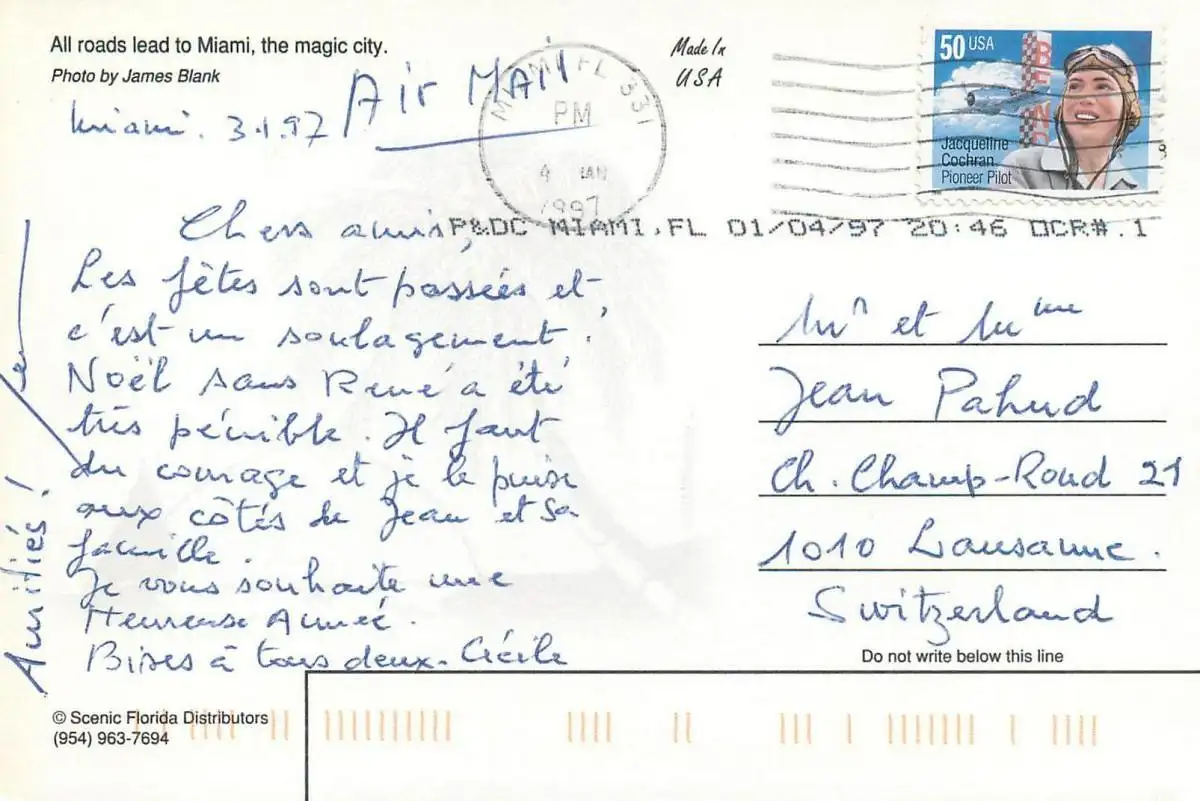 All roads lead to Miami, the magic city.
Photo by James Blank
Made In
USA
50 USA
Jacqueline
Cochran
Pioneer Pilot
MIAMI FL 331
PM
4 JAN
1997
P&DC MIAMI, FL 01/04/97 20:46 OCR#.1
Air Mail
Miami. 3.1.97
Chers amis,
Les fêtes sont passées et
c'est un soulagement !
Noël sans René a été
très pénible. Il faut
du courage et je le puise
aux côtés de Jean et sa
famille.
Je vous souhaite une
Heureuse Année.
Bises à tous deux. Cécile
Amitiés !
Mr et Mme
Jean Pahud
Ch. Champ-Rond 21
1010 Lausanne.
Switzerland
Do not write below this line
© Scenic Florida Distributors
(954) 963-7694